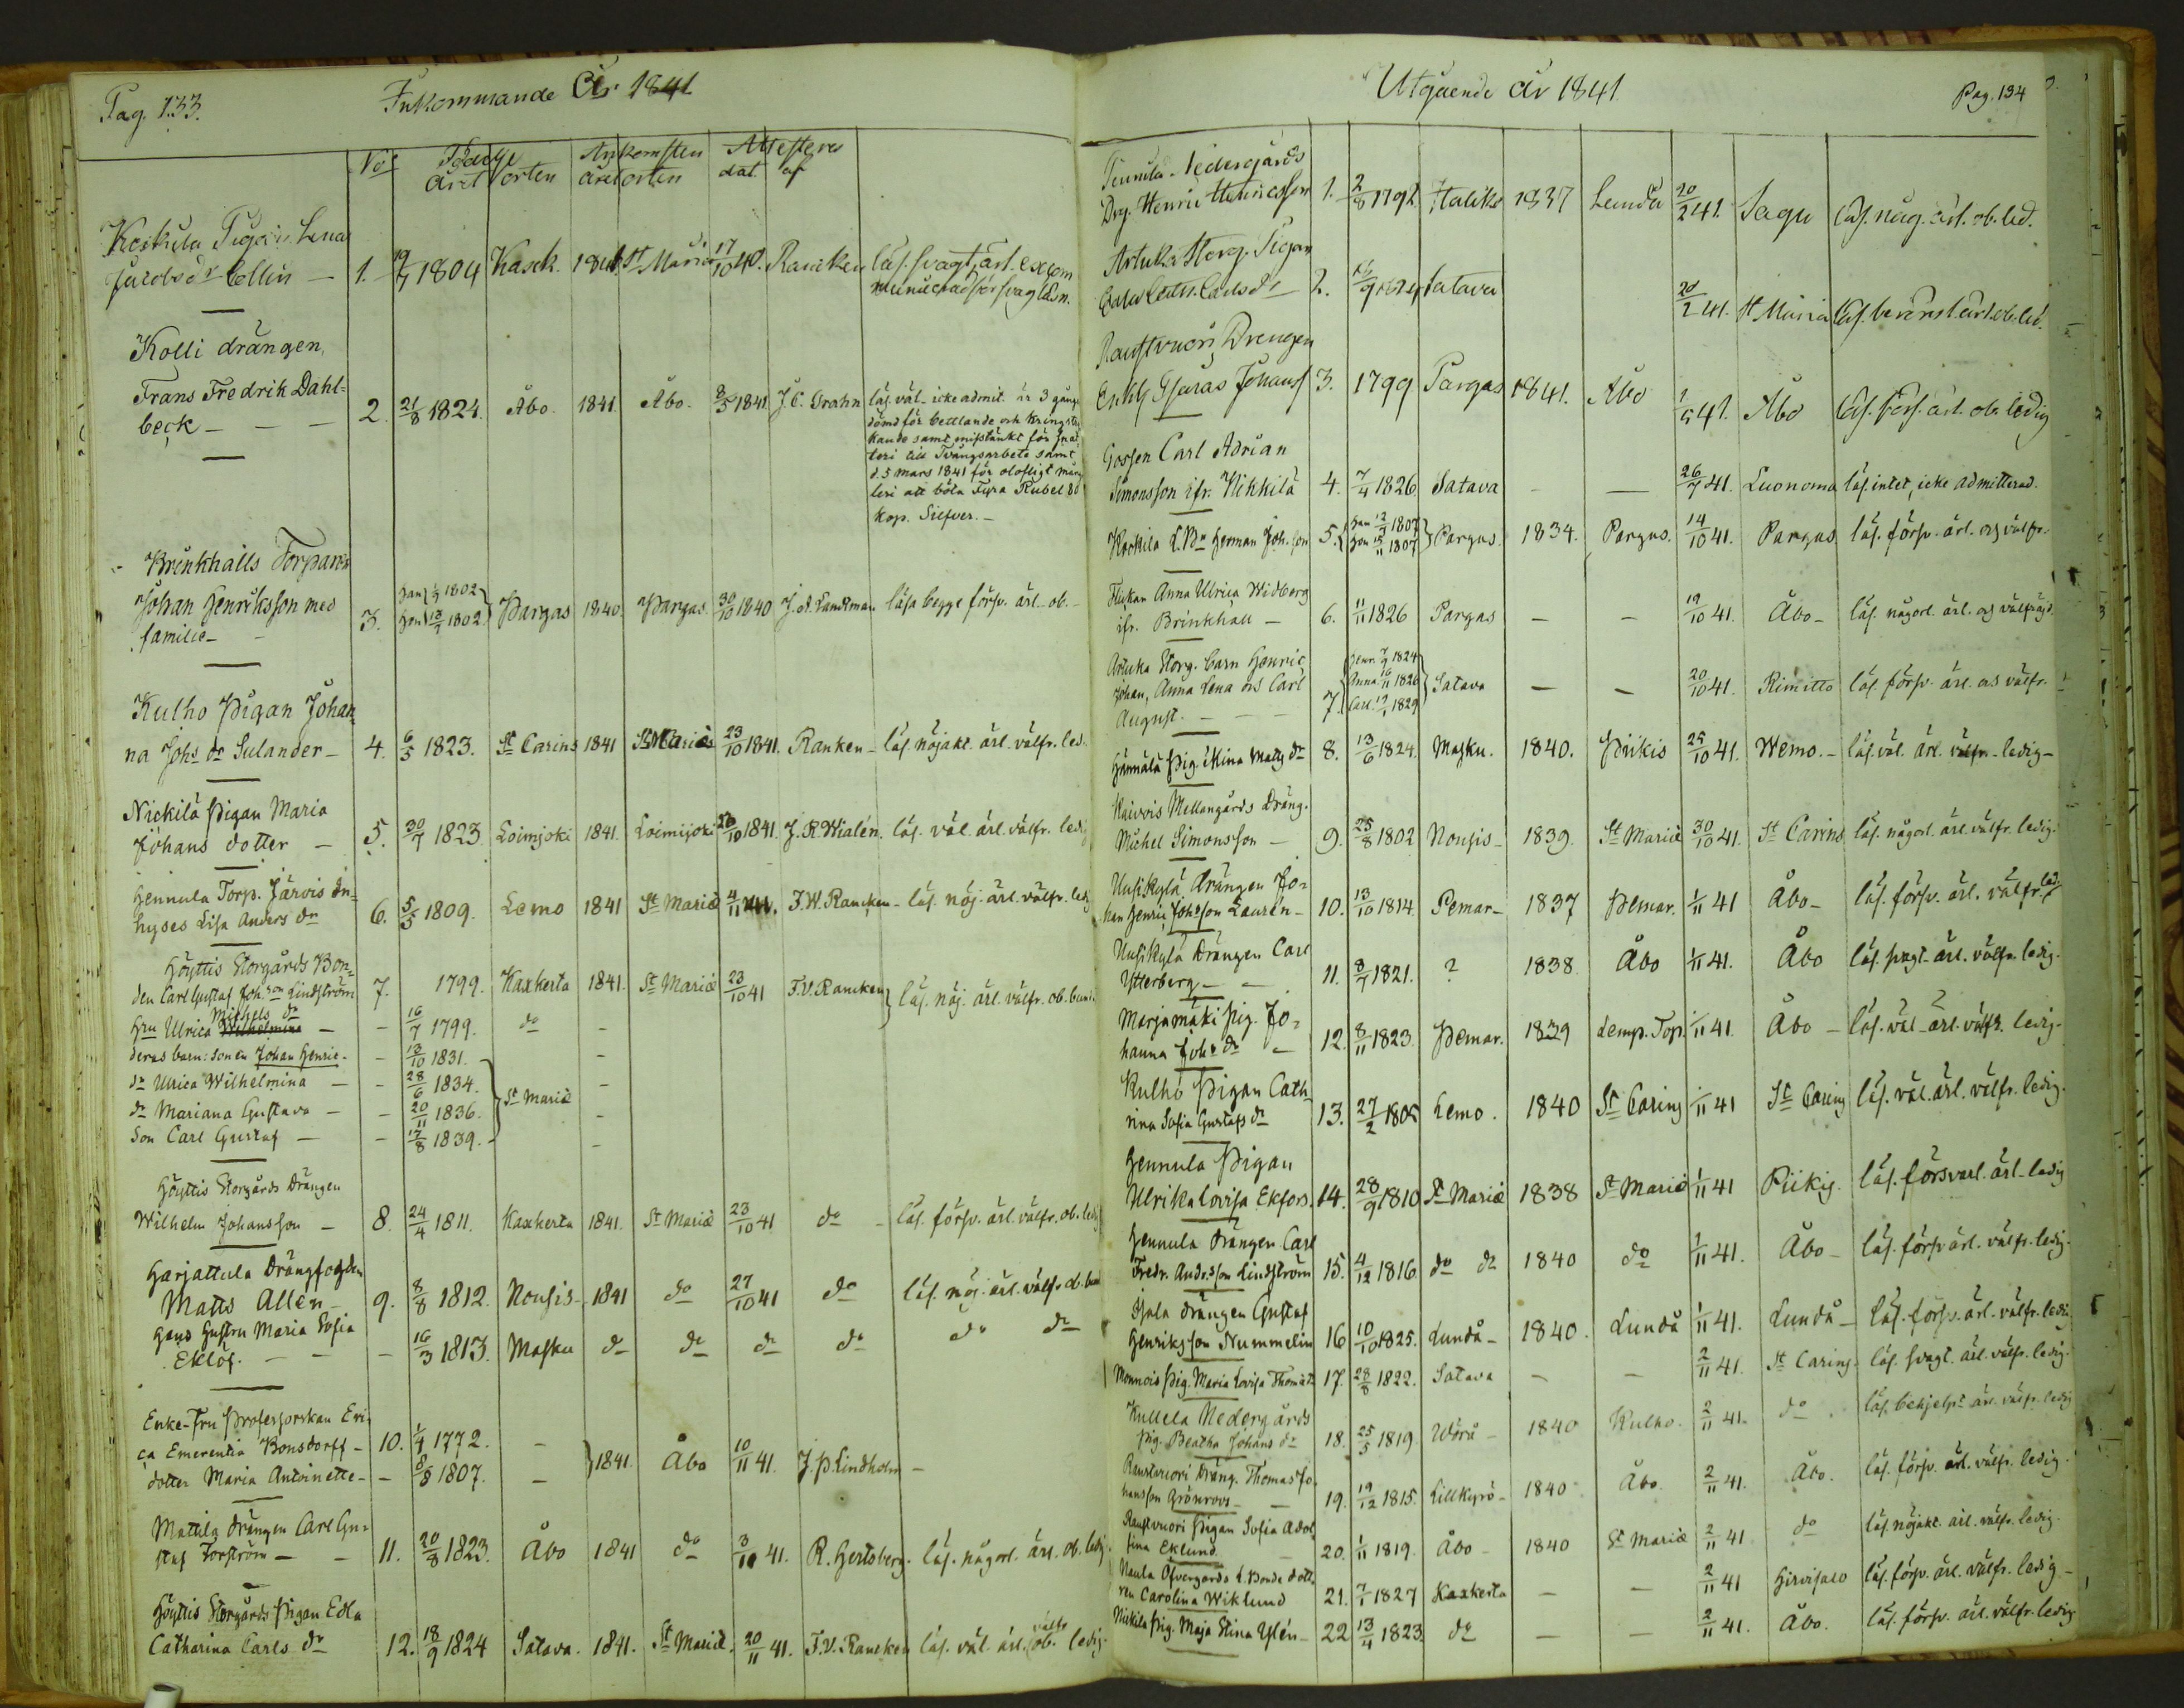 Pag. 133.
Inkommande År 1841
No
Födelse
året orten
Ankomsten
året orten
Attesteres
dat. af
Koskula Pigan Lena
Jacobsdr Collin — 1. 19/7 1804 Kasck. 1841 St Mariæ 17/10 40. Rancken läs. svagt, ärl.
för svag läsn.
Kolli drängen,
Frans Fredrik Dahl-
beck — — — 2. 21/8 1824. Åbo. 1841. Åbo. 8/5 1841. J. E. Grahn läs. väl. icke admit. är 3 gånger
dömd för bettlande och kringstry
kande samt misstänkt för snat
teri till Tvångsarbete samt
d. 5 Mars 1841 för olofligt mång
leri att böta Fyra Rubel 80
kop. Silfver. —
Brinkhalls Torparn
Johan Henriksson med
familie — 3. han 1802 hon 13/7 1802. Pargas 1840. Pargas. 30/10 1840 J. A. Landtman läsa begge försv. ärl. ob. —
Kulho Pigan Johan
na Johs dr Sulander — 4. 6/5 1823. St Carins 1841 St Mariæ 23/10 1841. Ranken — läs. nöjakt. ärl. välfr. led.
Nickilä Pigan Maria
Johans dotter — 5. 30/7 1823 Loimjoki 1841. Loimijoki 10 1841. J. R. Wialén. läs. väl. ärl. välfr. ledig
Hennula Torp. Järvis In-
hyses Lisa Anders dr 6. 5/5 1809. Lemo 1841 St Mariæ 4/11 41. F. W. Rancken — läs. nöj. ärl. välfr. ledig
Höyttis Storgårds Bon-
den Carl Gustaf Johsson Lindström 7. 1799. Kaxkerta 1841. St Mariæ 23/10 41 F. V. Rancken läs. nöj. ärl. välfr. ob.
Michels dr
Hru Ulrica Wilhelmina — — 16/7 1799. do —
deras barn: sonen Johan Henric — — 13/10 1831. —
dr Ulrica Wilhelmina — — 28/6 1834. St Mariæ —
dr Mariana Gustava — — 20/11 1836. —
Son Carl Gustaf — — 17/8 1839. —
Höyttis Storgårds Drängen
Wilhelm Johansson — 8. 24/4 1811. Kaxkerta 1841. St Mariæ 23/10 41 do — läs. försv. ärl. välfr. ob. ledig
Harjattula Drängfogden
Matts Allén — 9. 8/8 1812. Nousis — 1841 do 27/10 41 do läs. nöj. ärl. välfr. ob.
Hans Hustru Maria Sofia
Eklöf. — — — 16/3 1813. Masku do do do do do do
Enke-Fru Professorskan Eri-
ca Emerentia Bonsdorff — 10. 1/4 1772. — 1841. Åbo 10/11 41. J. P. Lindholm —
dotter Maria Antoinette — — 8/8 1807. —
Mattila drängen Carl Gu-
staf Forström — — 11. 20/8 1823. Åbo 1841 do 3/10 41. R. Hertsberg. läs. någorl. ärl. ob. ledig.
Höyttis Storgårds Pigan Edla
välfr
Catharina Carls dr 12. 18/9 1824 Satava. 1841. St Mariæ. 20/11 41. F. V. Rancken läs. väl. ärl. ob. ledig.
Utgående år 1841
Pag. 134
Nedergårds
Drg. Henric Henricsson 1. 2/8 1792 Haliko 1837 Lundå 20/2 41. Sagu läs. någ. ärl. ob. led.
Artuka Storg. Pigan
Edla Cath. Carlsdr 2. 18/9 1824 Satava 20/2 41. St Maria läs. ärl. ob. led.
Raustvuori Drengen
Johanss 3. 1799 Pargas 1841. Åbo 1/5 41. Åbo läs. förs. ärl. ob. ledig
Gossen Carl Adrian
Simonsson ifr. Nikkilä 4. 7/4 1826 Satava — — 26/7 41. Luonoma läs. intet, icke admitterad.
Kockila L. Bn Herman Joh.son 5. han 12/9 1807 hon 15/11 1807 Pargas. 1834. Pargas. 14/10 41. Pargas läs. försv. ärl. och välfr.
Flickan Anna Ulrica Widberg
ifr. Brinkhall — 6. 11/11 1826 Pargas — — 19/10 41. Åbo — läs. någorl. ärl. och välfräjd.
Artuka Storg. barn Henric
Johan, Anna Lena och Carl
August. — — — 7. Henr. 7/9 1824 Anna 16/11 1826 Carl. 1829 Satava — — 20/10 41. Rimitto läs. försv. ärl. och välfr.
Härmälä Pig. Stina Matts dr 8. 13/6 1824. Masku. 1840. Piikis 25/10 41. Wemo. — läs. väl. ärl. välfr. ledig —
Kaivois Mellangårds Dräng.
Michel Simonsson — 9. 25/8 1802 Nousis — 1839. St Mariæ 30/10 41. St Carins läs. någorl. ärl. välfr. ledig.
Uusikylä drängen Jo-
han Henric Johsson Laurén — 10. 13/10 1814. Pemar — 1837 Pemar. 1/11 41 Åbo — läs. försv. ärl. välfr. led.
Uusikylä Drängen Carl
Ytterberg — — 11. 8/7 1821. ? 1838. Åbo 1/11 41. Åbo läs. svagt. ärl. välfr. ledig.
Marjamäki Pig. Jo-
hanna Johs dr — 12. 8/11 1823. Pemar. 1839 Lemp. Top. 1/11 41. Åbo — läs. väl — ärl. välfr. ledig.
Kulho Pigan Cath-
rina Sofia Gustafs dr 13. 27/2 1805 Lemo. 1840 St Carins 1/11 41 St Carins läs. väl. ärl. välfr. ledig.
Hennula Pigan
Ulrika Lovisa Ekfors. 14. 28/9 1810 St Mariæ 1838 St Mariæ 1/11 41 Piikis. läs. försvarl. ärl. ledig
Hennula Drängen Carl
Fredr. Andrsson Lindström 15. 4/12 1816. do do 1840 do 1/11 41. Åbo — läs. försv ärl. välfr. ledig.
Isula drängen Gustaf
Henriksson Nummelin 16 10/10 1825. Lundå — 1840. Lundå 1/11 41. Lundå — läs. försv. ärl. välfr. ledig
Monnois Pig. Maria Lovisa Thomasdr 17. 28/8 1822. Satava — — 2/11 41. St Carins. läs. svagt. ärl. välfr. ledig.
Kullela Nedergårds
Pig. Beatha Johans dr 18. 25/5 1819. Wörå — 1840 Kulho. 2/11 41. do läs. behjelpl. ärl. välfr. ledig
Raustvuori Dräng. Thomas Jo-
hansson Grönroos — — 19. 19/12 1815. Lillkyrö — 1840 Åbo. 2/11 41. Åbo. läs. försv. ärl. välfr. ledig.
Raustvuori Pigan Sofia Adol
fina Eklund — 20. 1/11 1819. Åbo — 1840 St Mariæ 2/11 41 do läs. nöjakt. ärl. välfr. ledig.
Naula Öfvergårds L. Bonde dott-
ren Carolina Wiklund 21. 7/1 1827 Kaxkerta — — 2/11 41 Hirvisalo läs. försv. ärl. välfr. ledig —
Nickila Pig. Maja Stina Ylén — 22. 13/4 1823. do — — 2/11 41. Åbo. läs. försv. ärl. välfr. ledig